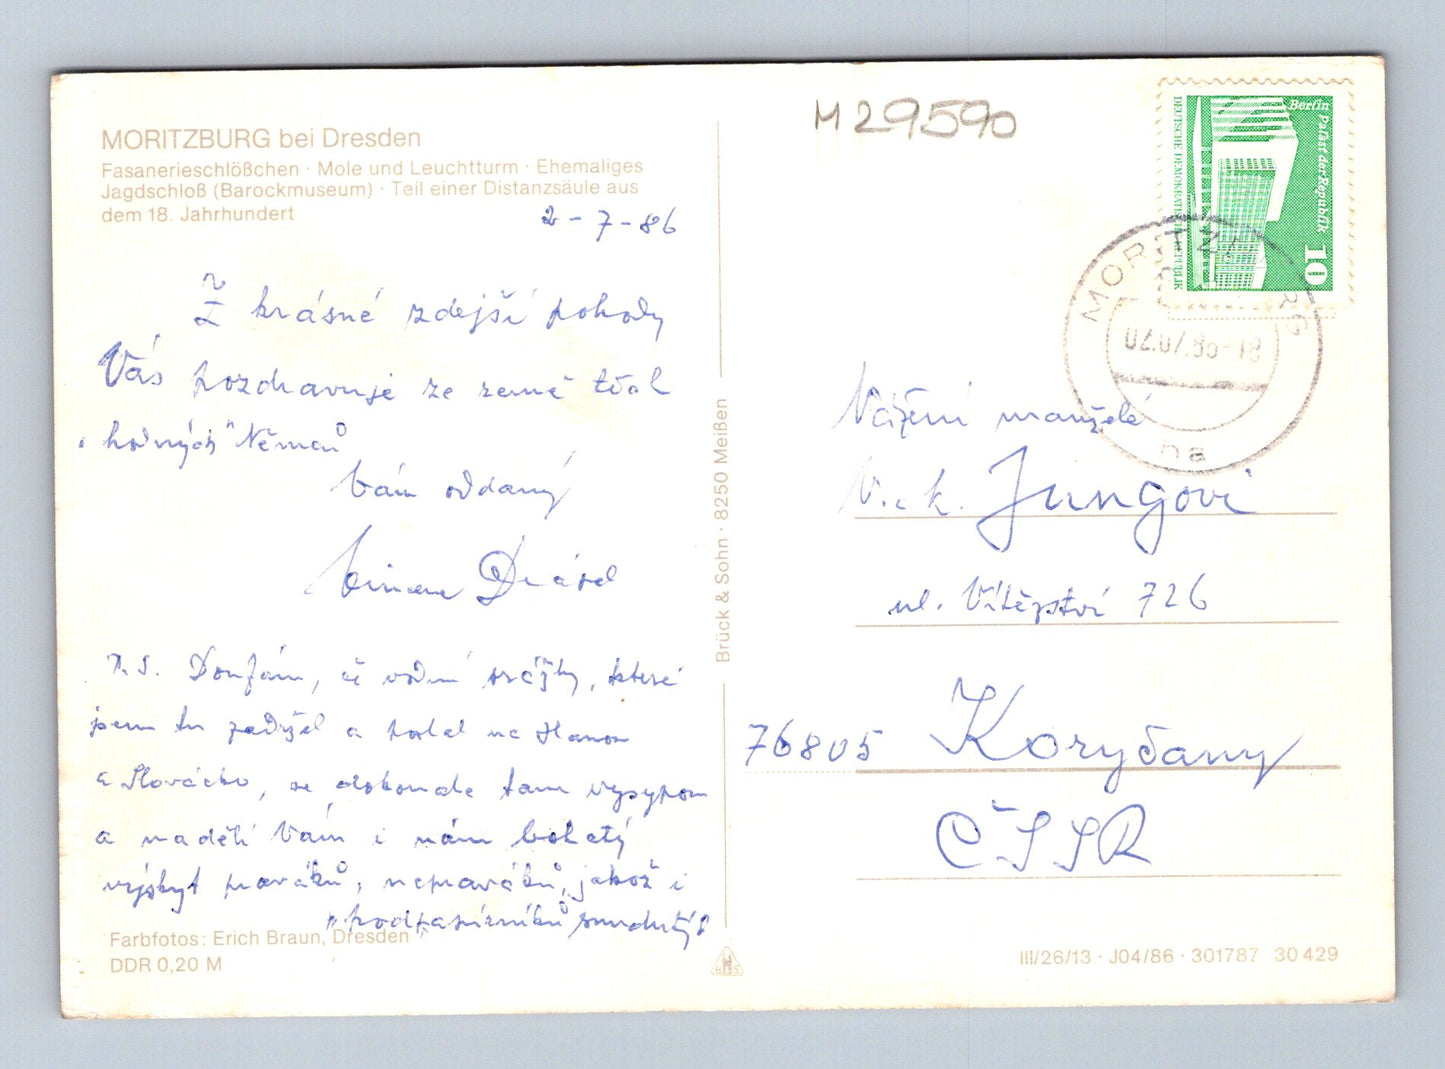 MORITZBURG bei Dresden
Fasanerieschlößchen · Mole und Leuchtturm · Ehemaliges
Jagdschloß (Barockmuseum) · Teil einer Distanzsäule aus
dem 18. Jahrhundert
2-7-86
Z krásné zdejší pohody
Vás pozdravuje ze země těch
"hodných" Němců
Vám oddaný
P.S. Doufám, že vodní srážky, které
jsem tu zadržel a poslal na Hanou
a Slovácko, se dokonale tam vysypou
a nadělí Vám i nám bohatý
výskyt praváků, nepraváků, jakož i
Farbfotos: Erich Braun, Dresden
DDR 0,20 M
Brück & Sohn · 8250 Meißen
M29590
Berlin Palast der Republik
10
DEUTSCHE DEMOKRATISCHE REPUBLIK
MORITZBURG
02.07.86-18
na
Vážení manželé
V. k. Jungovi
ul. Vítězství 726
76805 Koryčany
ČSSR
III/26/13 · J04/86 · 301787 30 429